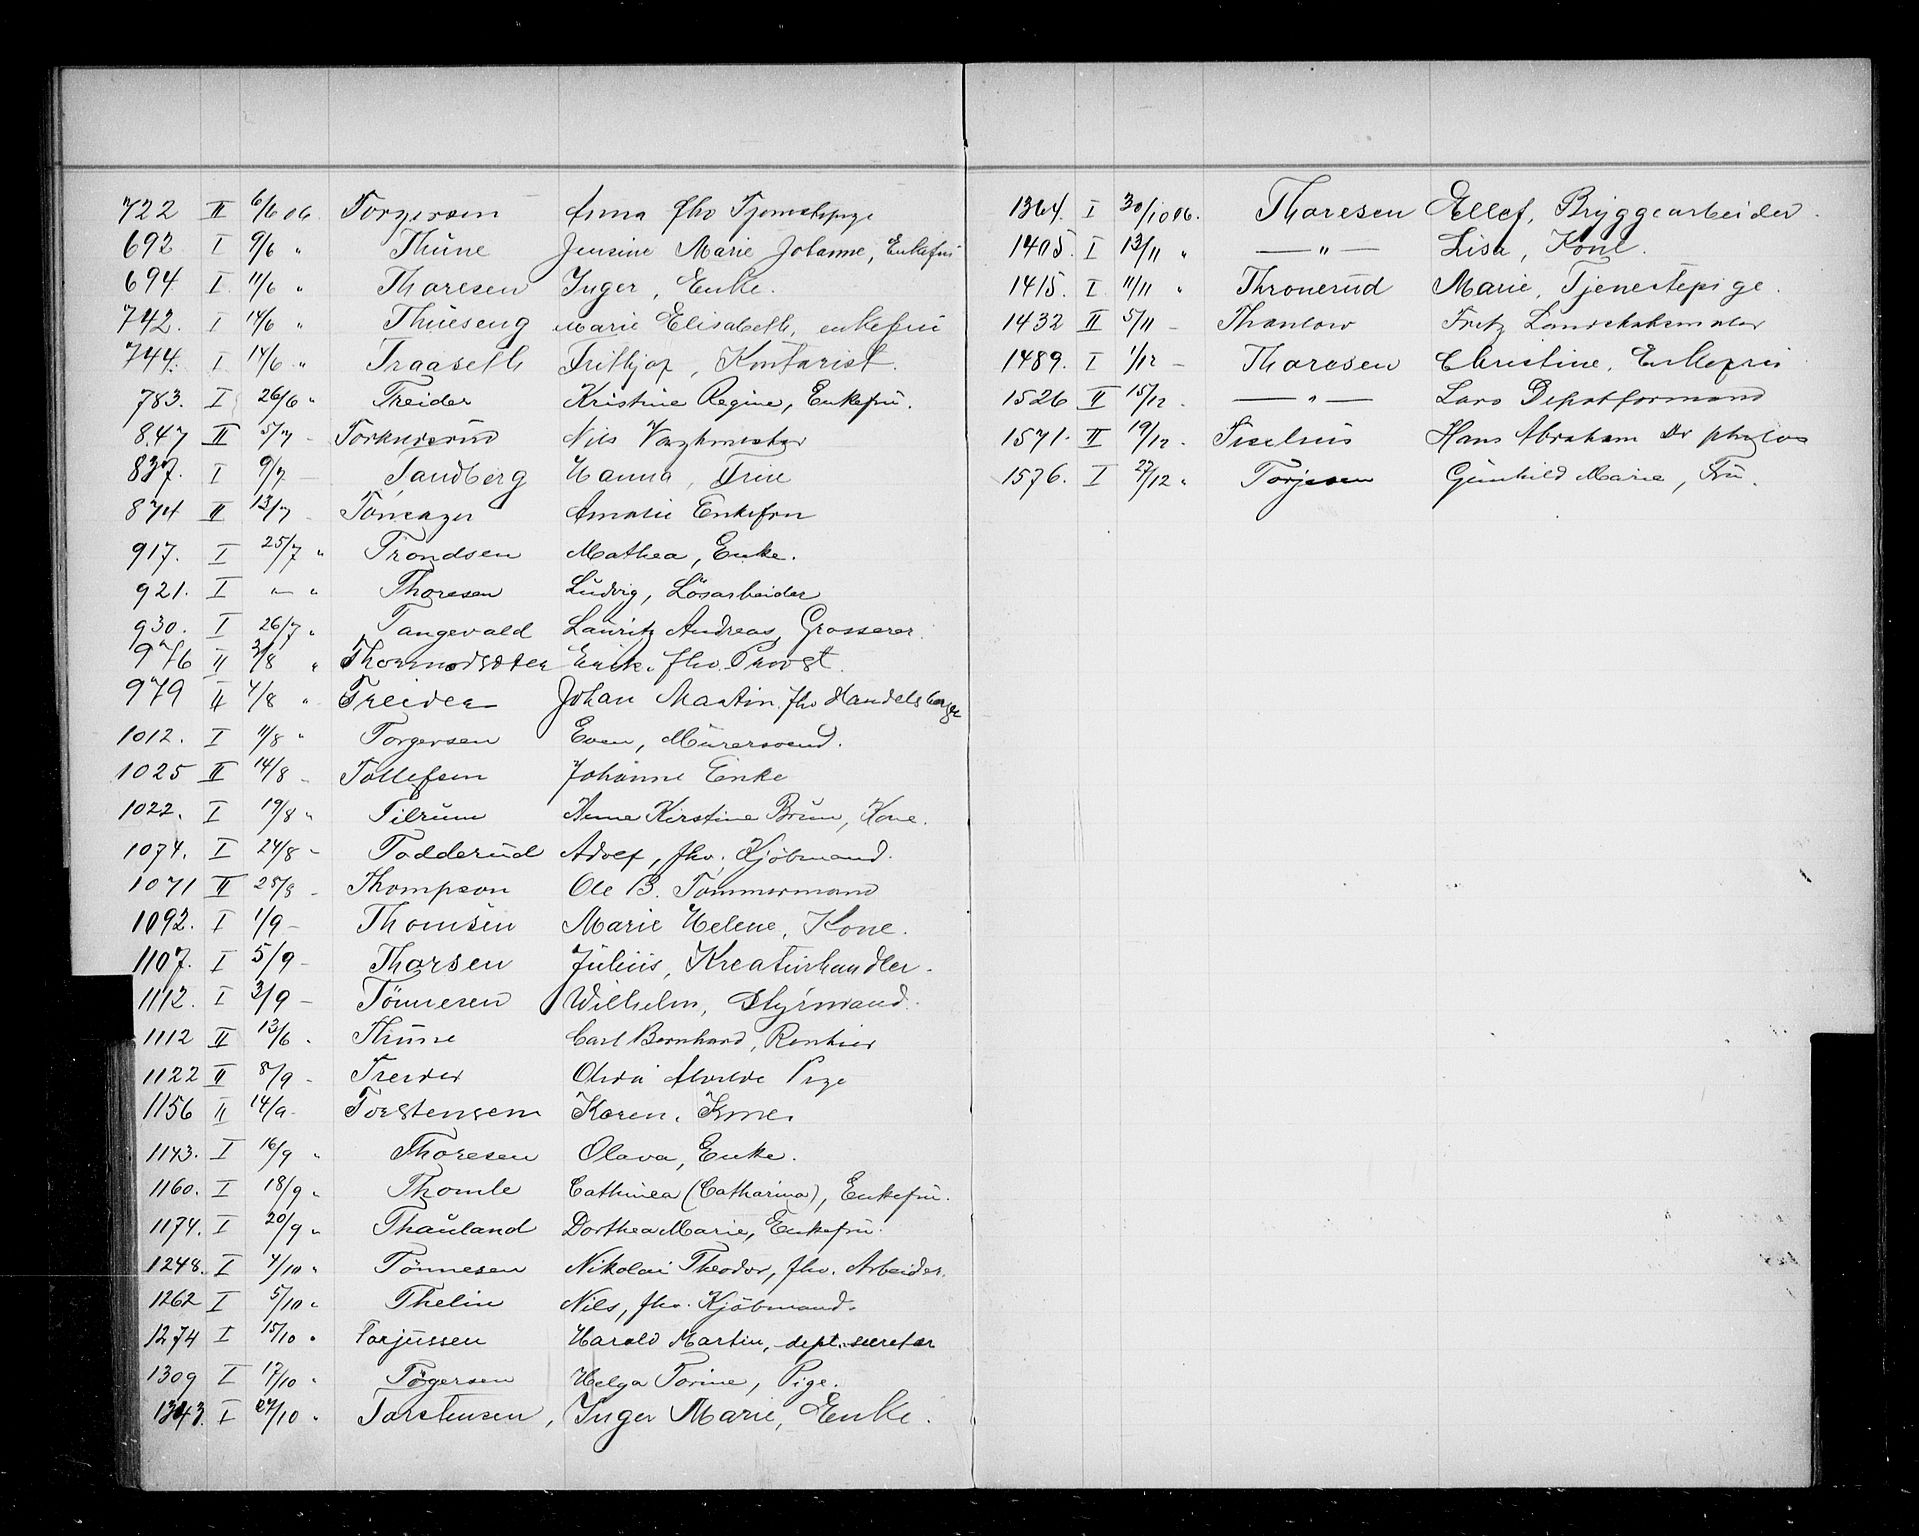 722 II 6/6 06. Torgersen Anna fhv Tjenestepige
692 I 9/6 " Thune Jensine Marie Johanne, Enkefru
694 I 11/6 " Thoresen Inger, Enke.
742. I 14/6 " Thueseng Marie Elisabeth, enkefru
744. I 14/6 " Traaseth Frithjof, Kontorist.
783. I 26/6 " Treider Kristine Regine, Enkefru.
847 II 5/7 - Nils Vagtmester
837. I 9/7 - Tandberg Hanna, Frue
874 II 13/7 - Amalie Enkefru
917. I 25/7 " Trondsen Mathea, Enke.
921. I - " Thoresen Ludvig, Løsarbeider
930. I 26/7 " Tangevald Lauritz Andreas, Grosserer.
976 II 3/8 " Erik. fhv. Provst.
979 II 4/8 " Treider Johan Martin, fhv Handelsborger
1012. I 11/8 " Torgersen Even, Murersvend.
1025 II 14/8 - Tollefsen Johanne Enke
1022. I 19/8 " Tilrum Anne Kirstine Brun, Kone.
1074. I 24/8 - Todderud Adolf, fhv. Kjøbmand.
1071 II 25/8 - Thompson Ole B. Tømmermand
1092. I 1/9 - Thomsen Marie Helene, Kone.
1107. I 5/9 - Thorsen Julius, Kreaturhandler.
1112. I 3/9 - Tönnesen Wilhelm, Styrmand.
1112 II 13/6 - Thune Carl Bernhard, Rentier
1122 II 8/9 - Treider Pige
1156 II 14/9 - Torstensen Karen. Kone.
1143. I 16/9 " Thoresen Olava, Enke.
1160. I 18/9 " Thomle Cathinca (Catharina), Enkefru.
1174. I 20/9 " Thauland Dorthea Marie, Enkefru.
1248. I 4/10 " Tönnesen Nikolai Theodor, fhv. Arbeider.
1262 I 5/10 " Thelin Nils, fhv. Kjøbmand.
1274 I 15/10 " Torjussen Harald Martin, dept. secretær
1309 I 17/10 " Törgersen Helga Torine, Pige.
1343. I 27/10 " Torstensen, Inger Marie, Enke.
1364. I 30/10 06. Thoresen Ellef, Bryggearbeider.
1405. I 13/11 " — " — Lisa, Kone.
1415. I 11/11 " Thronerud Marie, Tjenestepige.
1432 II 5/11 - Thaulow Fritz Landskabsmaler
1489. I 1/12 - Thoresen Christine, Enkefru
1526 II 15/12 - — " — Lars Depotformand
1571. II 19/12 - Hans Abraham Dr philos
1576. I 27/12 " Torjesen Gunhild Marie, Fru.